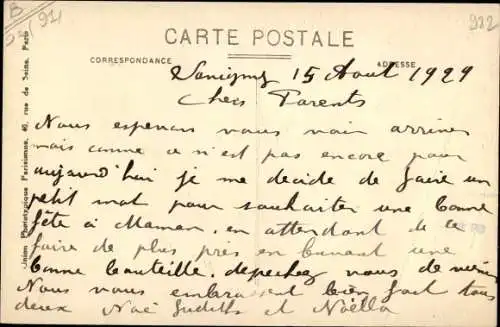 B
982
CARTE POSTALE
CORRESPONDANCE
ADRESSE
Union Phototypique Parisienne, 40, rue de Seine, Paris
15 Aout 1929
Chers Parents
Nous esperions vous voir arriver
mais comme ce n'est pas encore pour
aujourd'hui je me decide de faire un
petit mot pour souhaiter une bonne
fête à Maman. en attendant de le
faire de plus près en buvant une
bonne bouteille. depechez vous de venir
Nous vous embrassent bien fort tous
deux Noé Judith et Noëlla